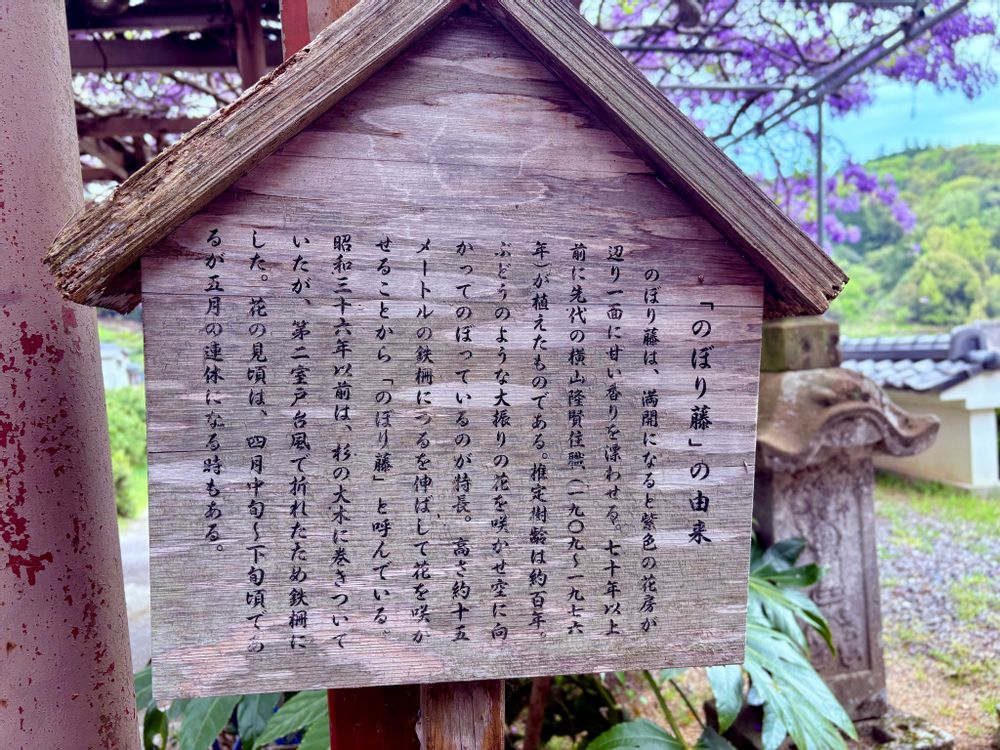 「のぼり藤」の由来
のぼり藤は、満開になると紫色の花房が
辺り一面に甘い香りを漂わせる。七十年以上
前に先代の横山隆賢住職(一九〇九〜一九七六
年)が植えたものである。推定樹齢は約百年。
ぶどうのような大振りの花を咲かせ空に向
かってのぼっているのが特長。高さ約十五
メートルの鉄柵につるを伸ばして花を咲か
せることから「のぼり藤」と呼んでいる。
昭和三十六年以前は、杉の大木に巻きついて
いたが、第二室戸台風で折れたため鉄柵に
した。花の見頃は、四月中旬〜下旬頃であ
るが五月の連休になる時もある。